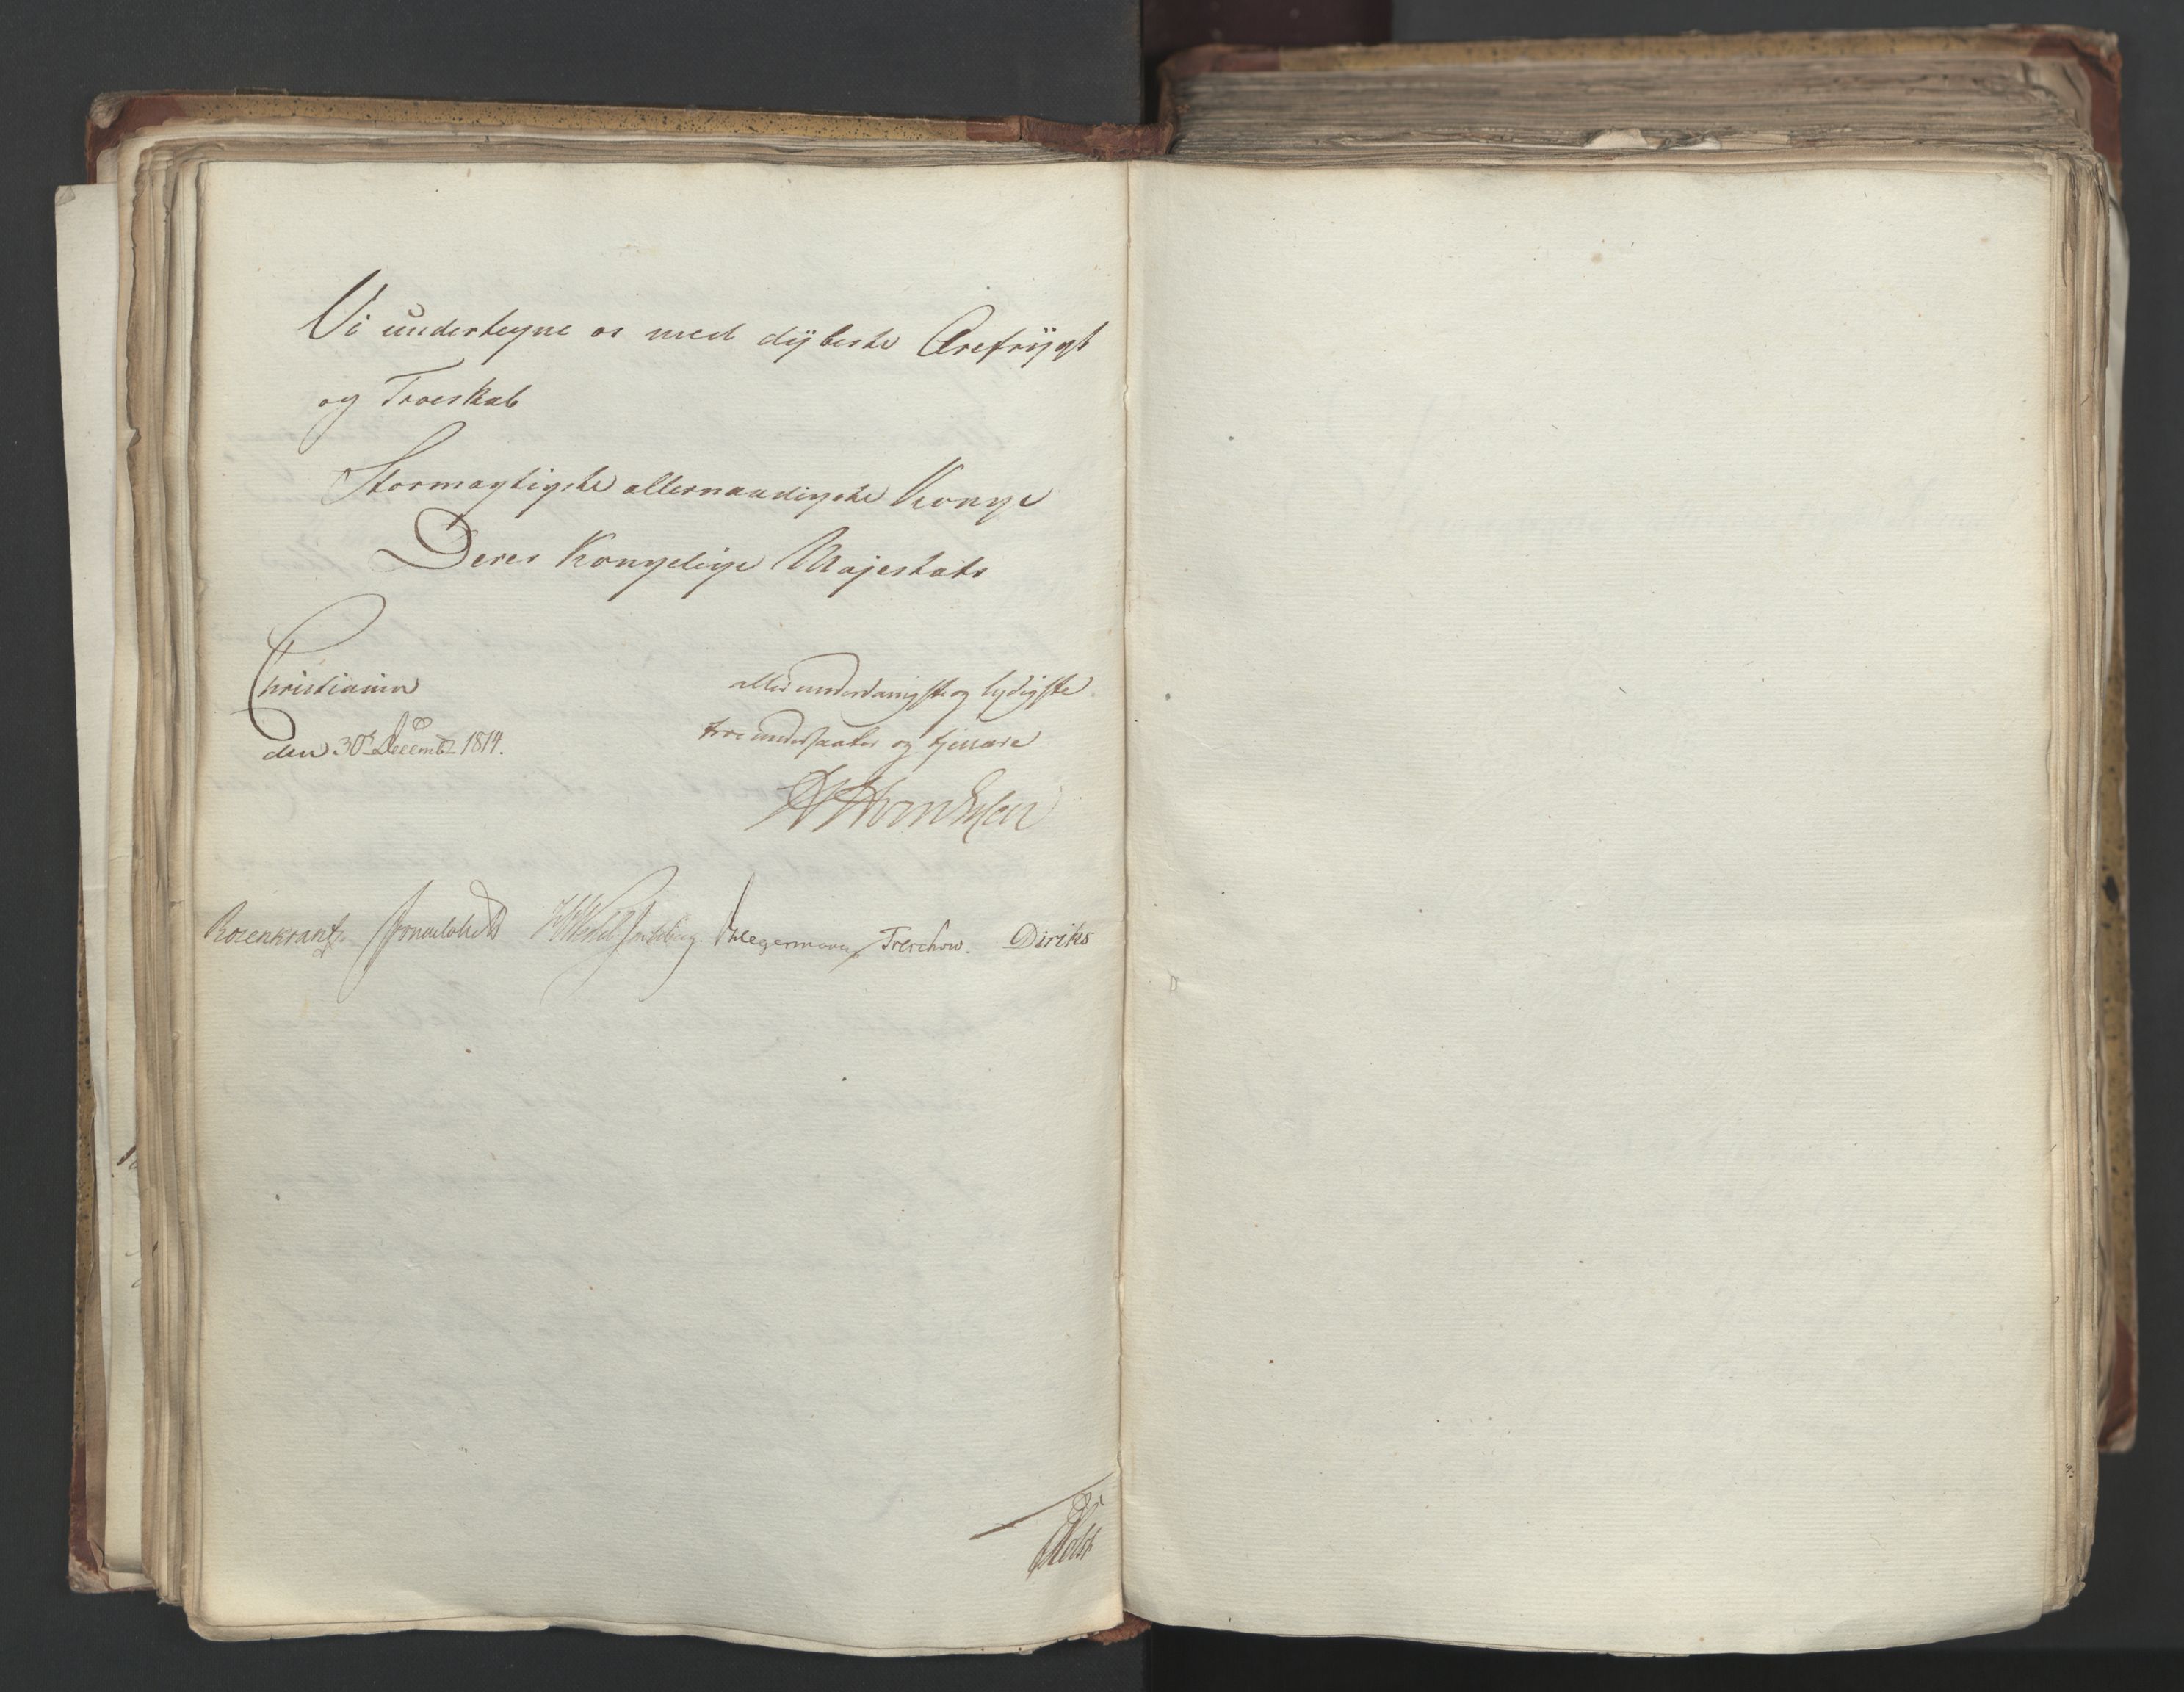 Vi undertegne os med dÿbeste Ærefrÿgt
og Troeskab
Stormægtigste allernaadigste Konge
Deres Kongelige Majestæts
Christiania
den 30te Decembr 1814.
allerunderdanigste og lydigste
troe undersaater og tjenere
Rosenkrantz Sommerhielm HWedel Jarlsberg Hegermann Treschow. Diriks
Holst